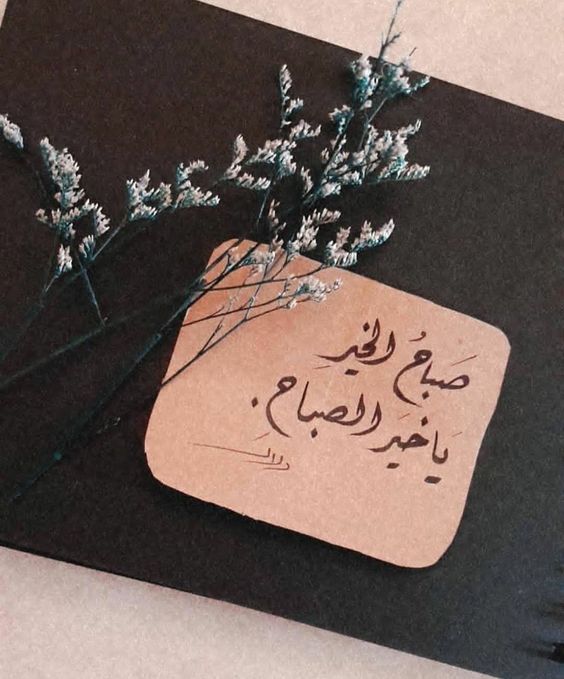 صَباحُ الخيرِ
يَا خَير الصباح.